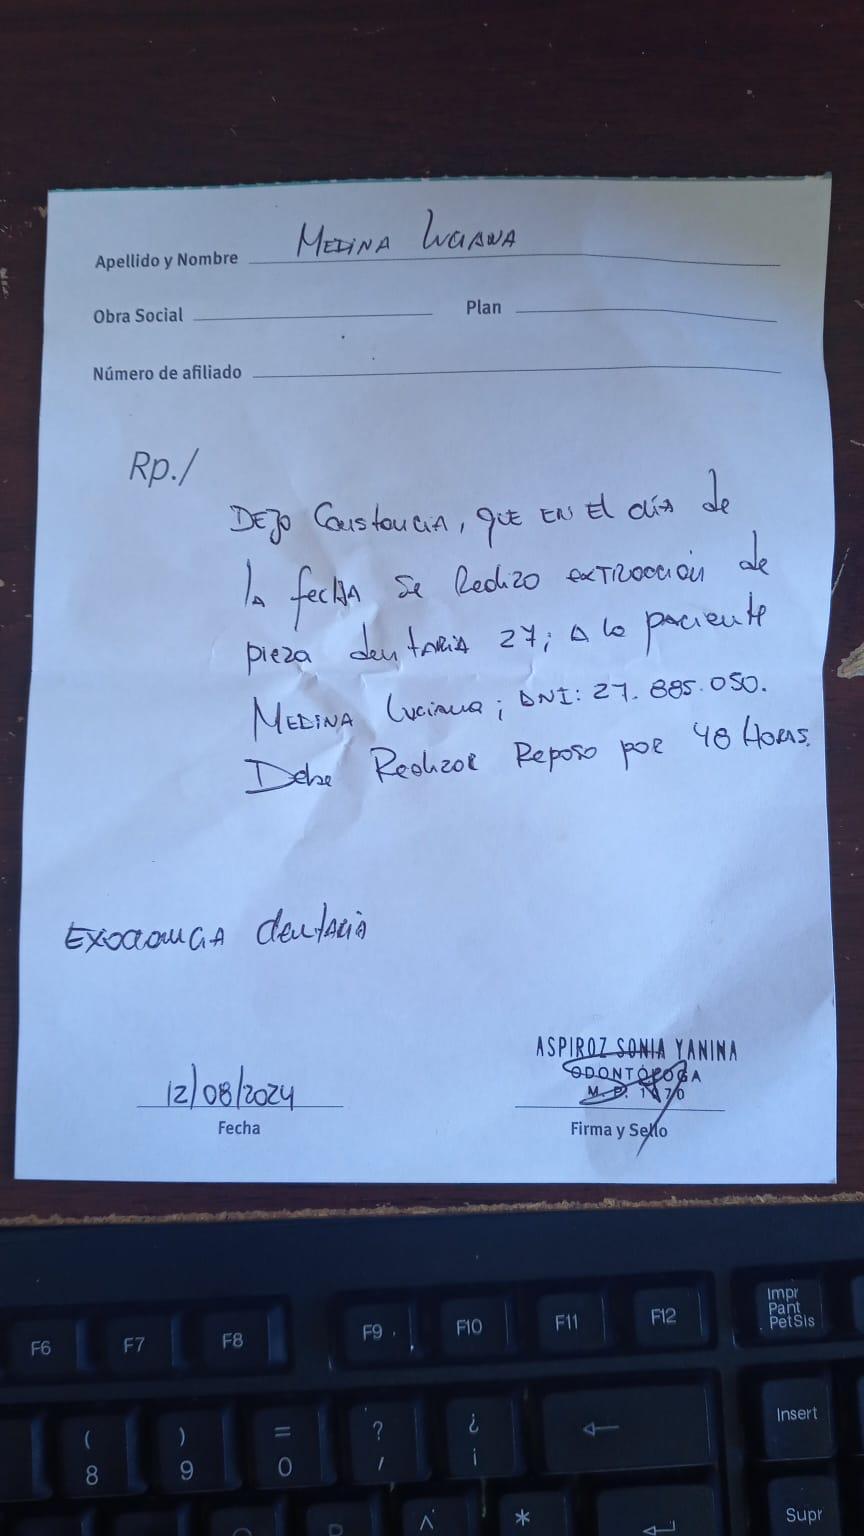 Apellido y Nombre MEDINA LUCIANA
Obra Social Plan
Número de afiliado
Rp./
DEJO Constancia, que EN El día de
la fecha se Realizo extracción de
pieza dentaria 27; A la paciente
MEDINA Luciana; DNI: 27.885.050.
Debe Realizar Reposo por 48 Horas.
EXODONCIA dentaria
ASPIROZ SONIA YANINA
ODONTÓLOGA
12/08/2024
M.P.
Fecha Firma y Sello
F6 F7 F8 F9 F10 F11 F12 Impr Pant PetSis
( ) = ? ¿ Insert
8 9 0 ' ¡
^ * Supr